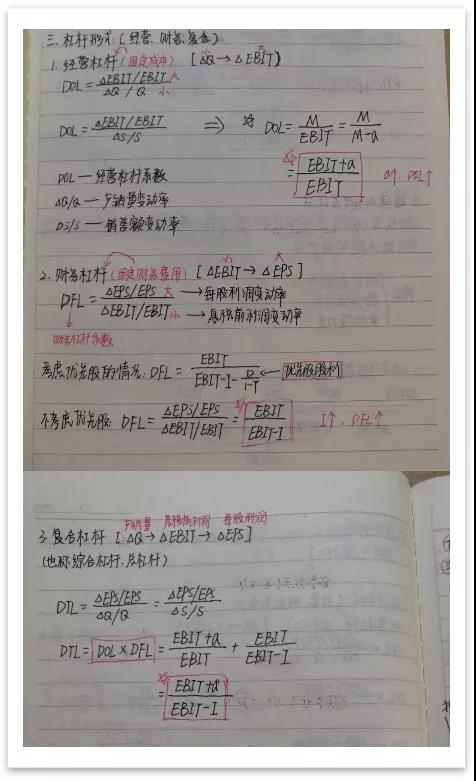 三. 杠杆形式: (经营、财务、复合)
1. 经营杠杆 (固定成本) [ 小 ΔQ → 大 ΔEBIT ]
DOL = ΔEBIT/EBIT 大 / ΔQ/Q 小
DOL = ΔEBIT/EBIT / ΔS/S ⇒ ☆ DOL = M/EBIT = M/M-a
DOL — 经营杠杆系数 = EBIT+a / EBIT a↑, DOL↑
ΔQ/Q — 产销量变动率
ΔS/S — 销售额变动率
2. 财务杠杆 (固定财务费用) [ 小 ΔEBIT → 大 ΔEPS ]
DFL = ΔEPS/EPS 大 → 每股利润变动率
ΔEBIT/EBIT 小 → 息税前利润变动率
财务杠杆系数
考虑优先股的情况: DFL = EBIT / EBIT-I-D/1-T ← 优先股股利
不考虑优先股: DFL = ΔEPS/EPS / ΔEBIT/EBIT = EBIT / EBIT-I I↑, DFL↑
产销量 息税前利润 每股利润
3. 复合杠杆 [ ΔQ → ΔEBIT → ΔEPS ]
(也称综合杠杆、总杠杆)
DTL = ΔEPS/EPS / ΔQ/Q = ΔEPS/EPS / ΔS/S
DTL = DOL × DFL = EBIT+a / EBIT + EBIT / EBIT-I
= EBIT+a / EBIT-I